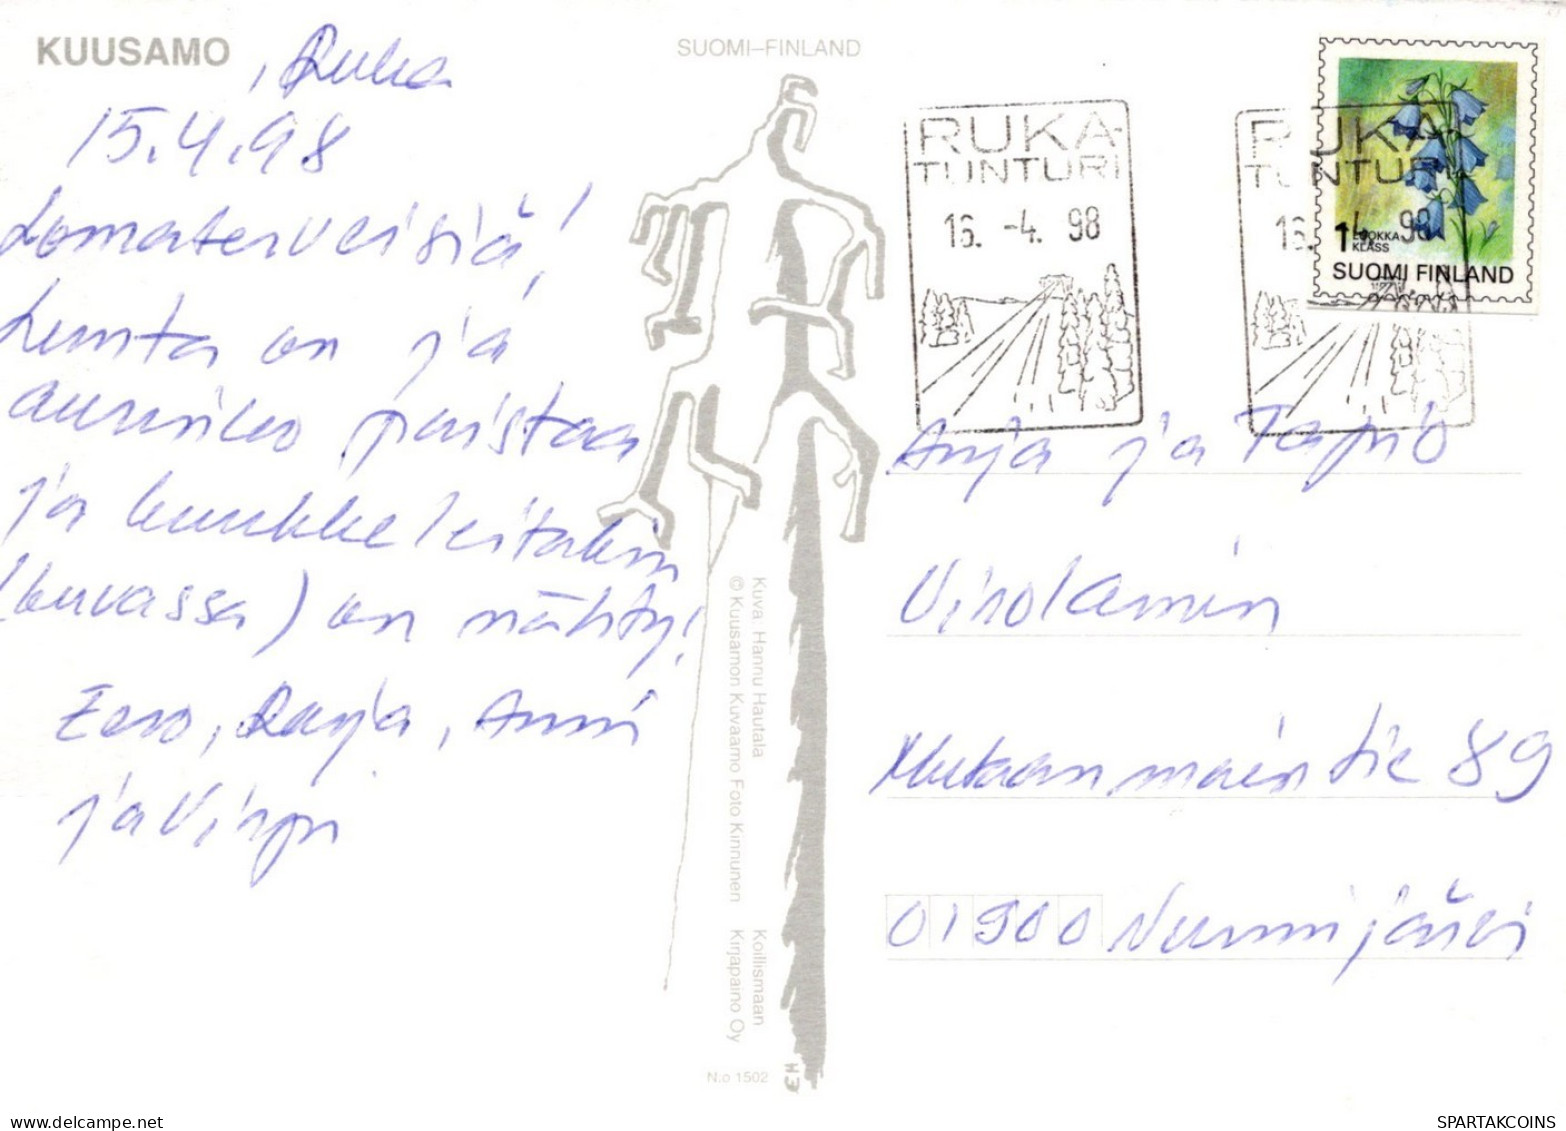 KUUSAMO, Ruka
15.4.98
Lomaterveisiä!
Lunta on ja
aurinko paistaa
ja kuukkeleitakin
(kuvassa) on nähty!
Eero, Raija, Anni
ja Virpi
SUOMI–FINLAND
Kuva: Hannu Hautala
© Kuusamon Kuvaamo Foto Kinnunen
Koillismaan
Kirjapaino Oy
N:o 1502
EH
RUKA-
TUNTURI
16. -4. 98
RUKA
TUNTURI
16. 4. 98
1 LUOKKA
KLASS
SUOMI FINLAND
Anja ja Tapio
Virolainen
89
01900 Nurmijärvi
SPARTAKCOINS